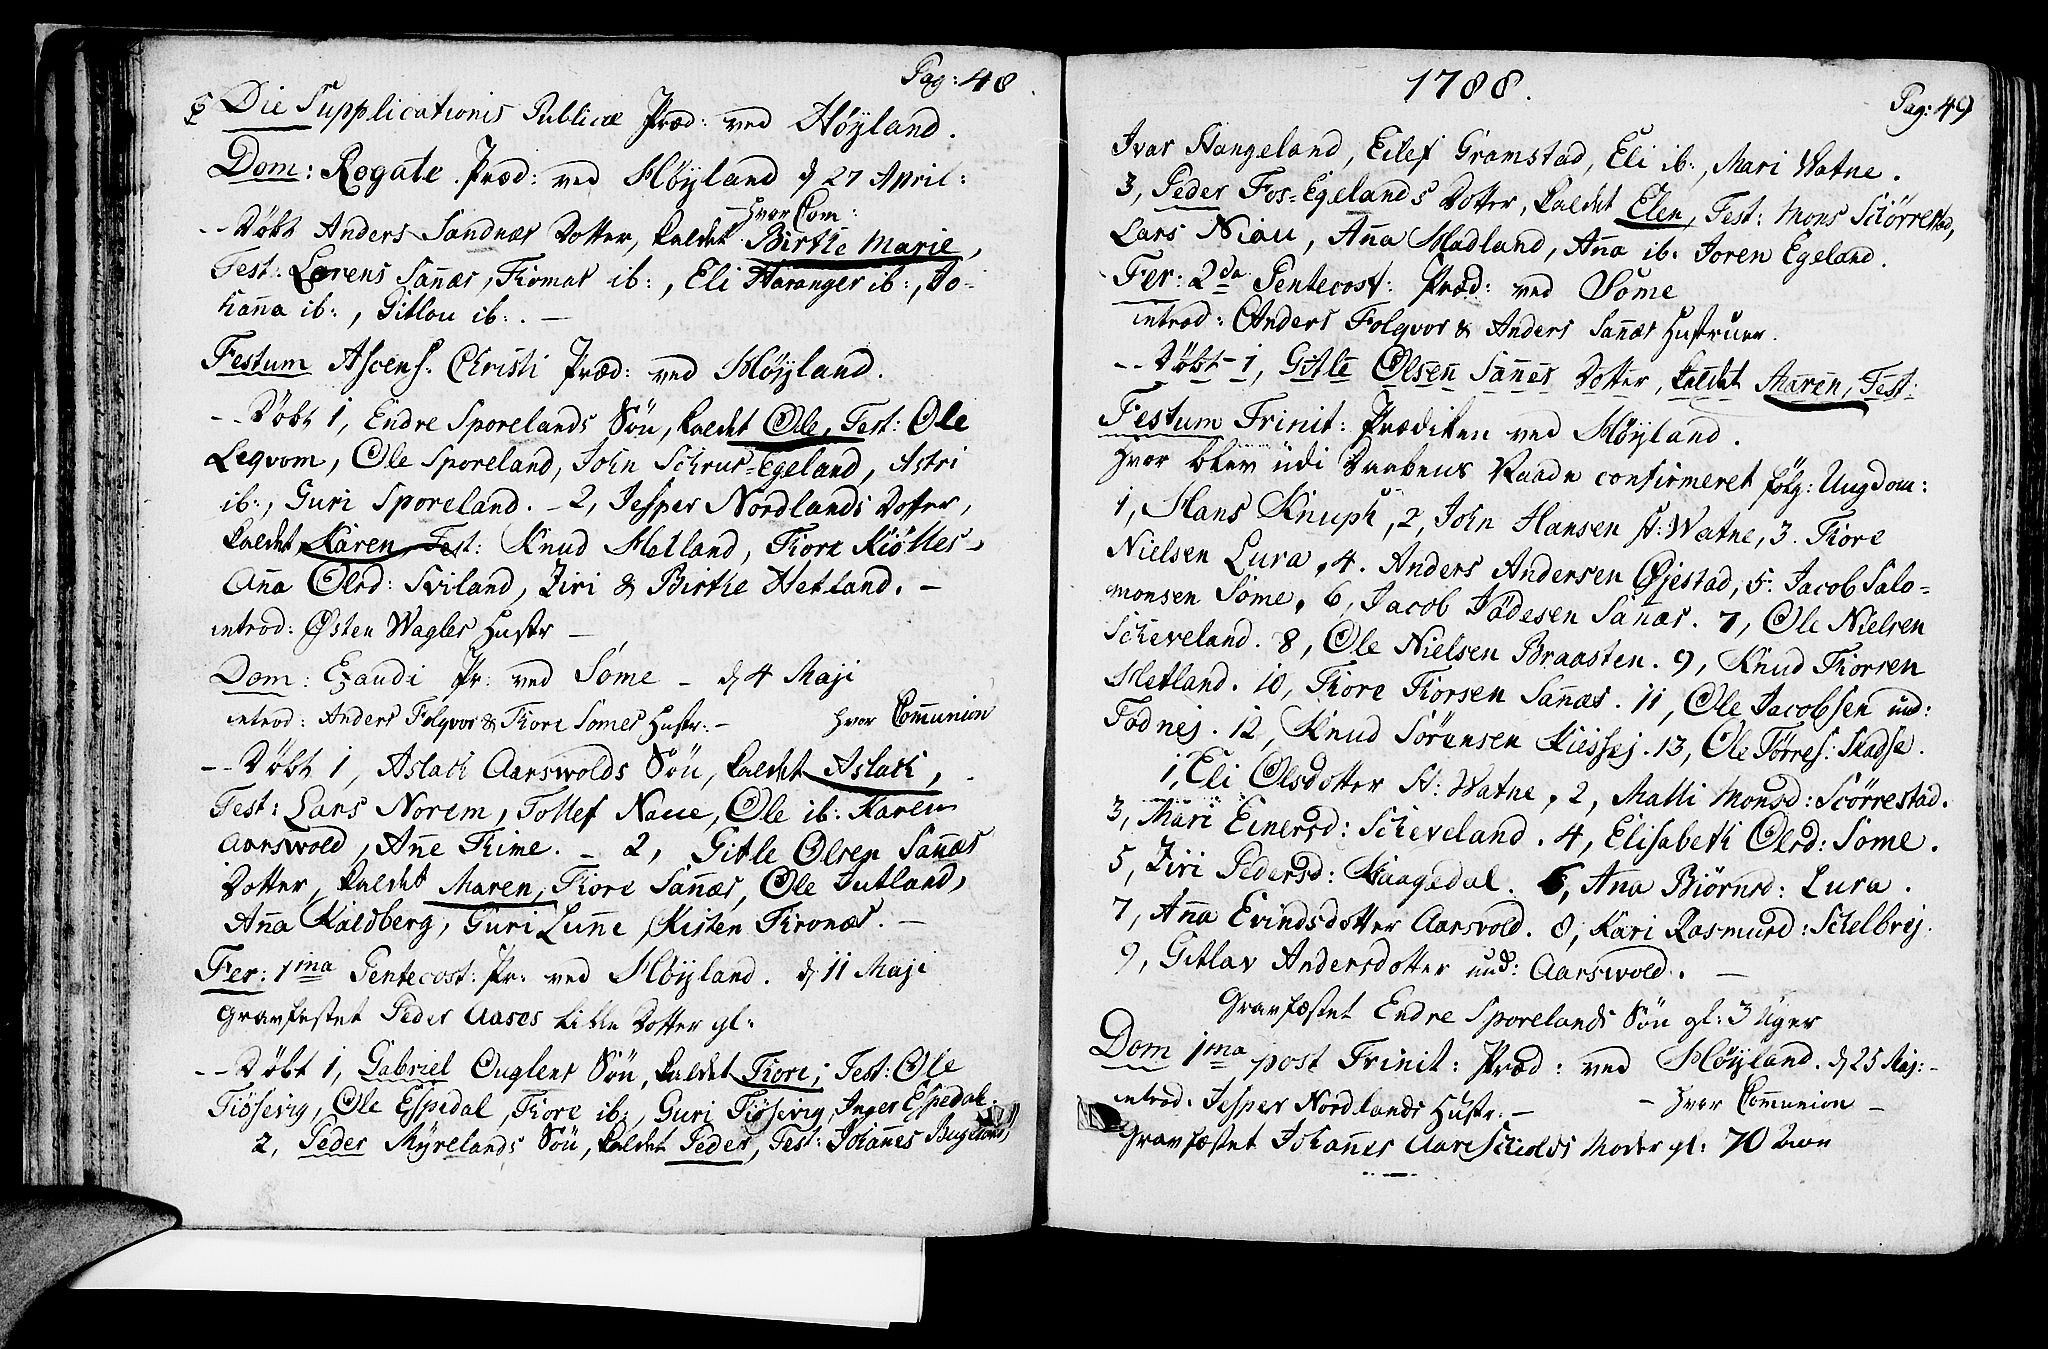 Pag: 48
Die Supplicationis Publicæ Præd: ved Höÿland.
Dom: Rogate. Præd: ved Höÿland d 27 April:
hvor Com:
-- Döbt Anders Sandnæs Dotter, kaldet Birthe Marie,
Test: Lorens Sañæs, Thomas ib:, Eli Haranger ib:, Jo-
haña ib:, Gitlou ib:. —
Festum Ascens. Christi Præd: ved Höÿland.
-- Döbt 1, Endre Sporelands Sön, kaldet Ole, Test: Ole
Leqvom, Ole Sporeland, John Schrus-Egeland, Astri
ib:, Guri Sporeland. - 2, Jesper Nordlands Dotter,
kaldet Karen, Test: Knud Hatland, Tiore Kiölles-
Aña Olsd: Sviland, Ziri & Birthe Hetland. -
introd: Østen Wagles Hustr —
Dom: Exaudi Pr: ved Sôme - d 4 Maji
introd: Anders Folqvos & Tiore Somes Hustr: - hvor Com̃union
-- Döbt 1, Aslach Aarswolds Sön, kaldet Aslach,
Test: Lars Norem, Tollef Naue, Ole ib: Karen
Aarswold, Añe Time. - 2, Gitle Olsen Sañæs
Dotter, kaldet Maren, Tiore Sañæs, Ole Jutland,
Aña Kaldberg, Guri Luñe, Kisten Tronæs. -
Fer: 1ma Pentecost: Pr: ved Höÿland. d 11 Maji
Gravfestet Peder Aases lille Dotter gl:
-- Döbt 1, Gabriel Ouglens Sön, kaldet Tiore, Test: Ole
Tiösevig, Ole Espedal, Tiore ib:, Guri Tiösevig, Inger Espedal.
2, Peder Mÿrelands Sön, kaldet Peder, Test: Johañes
1788.
Pag: 49
Ivar Hangeland, Eilef Gramstad, Eli ib:, Mari Watne.
3, Peder Fos-Egelands Dotter, kaldet Elen, Test: Mons Sciörrestad,
Lars Niau, Aña Madland, Aña ib. Joren Egeland.
Fer: 2da Pentecost: Præd: ved Sôme
introd: Anders Folqvos & Anders Sañæs Hustruer.
-- Döbt - 1, Gitle Olsen Sañes Dotter, kaldet Maren, Test:
Festum Trinit: Prædiken ved Höÿland.
Hvor blev udi Daabens Naade confirmeret fölg: Ungdom:
1, Hans Knuph, 2, John Hansen St: Watne, 3. Tiore
Nielsen Lura, 4. Anders Andersen Øjestad, 5. Jacob Salo-
monsen Sôme, 6, Jacob Jådesen Sañæs. 7, Ole Nielsen
Scheveland. 8, Ole Nielsen Braasten. 9, Knud Thorsen
Hetland. 10, Tiore Thorsen Sañæs. 11, Ole Jacobsen und:
Todnej. 12, Knud Sörensen Kiessej. 13, Ole Törres: Skadse.
1, Eli Olsdotter St: Watne, 2, Malli Monsd: Sciörrestad.
3, Mari Einersd: Scheveland. 4, Elisabeth Olsd: Sôme.
5, Ziri Pedersd: Kaagedal. 6, Ana Biörnsd: Lura.
7, Aña Evindsdotter Aarsvold. 8, Kari Rasmusd: Schelbrej.
9, Gitlav Andersdotter und: Aarswold. —
Gravfæstet Endre Sporelands Sön gl: 3 Uger
Dom 1ma post Trinit: Præd: ved Höÿland. d 25 Maj: -
introd: Jesper Nordlands Hustr: - - hvor Com̃union -
Gravfæstet Johañes Moder gl: 70 Aar